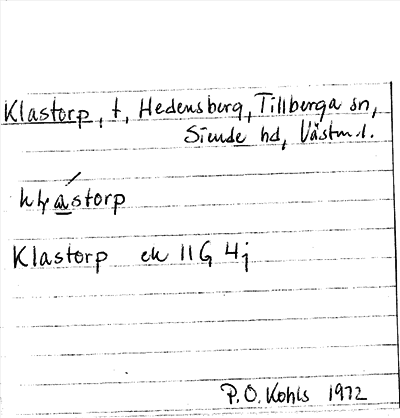 Klastorp, t, Hedensberg, Tillberga sn,
Siende hd, Västm.l.
Klastorp ek 11G 4j
P.O. Kohls 1972